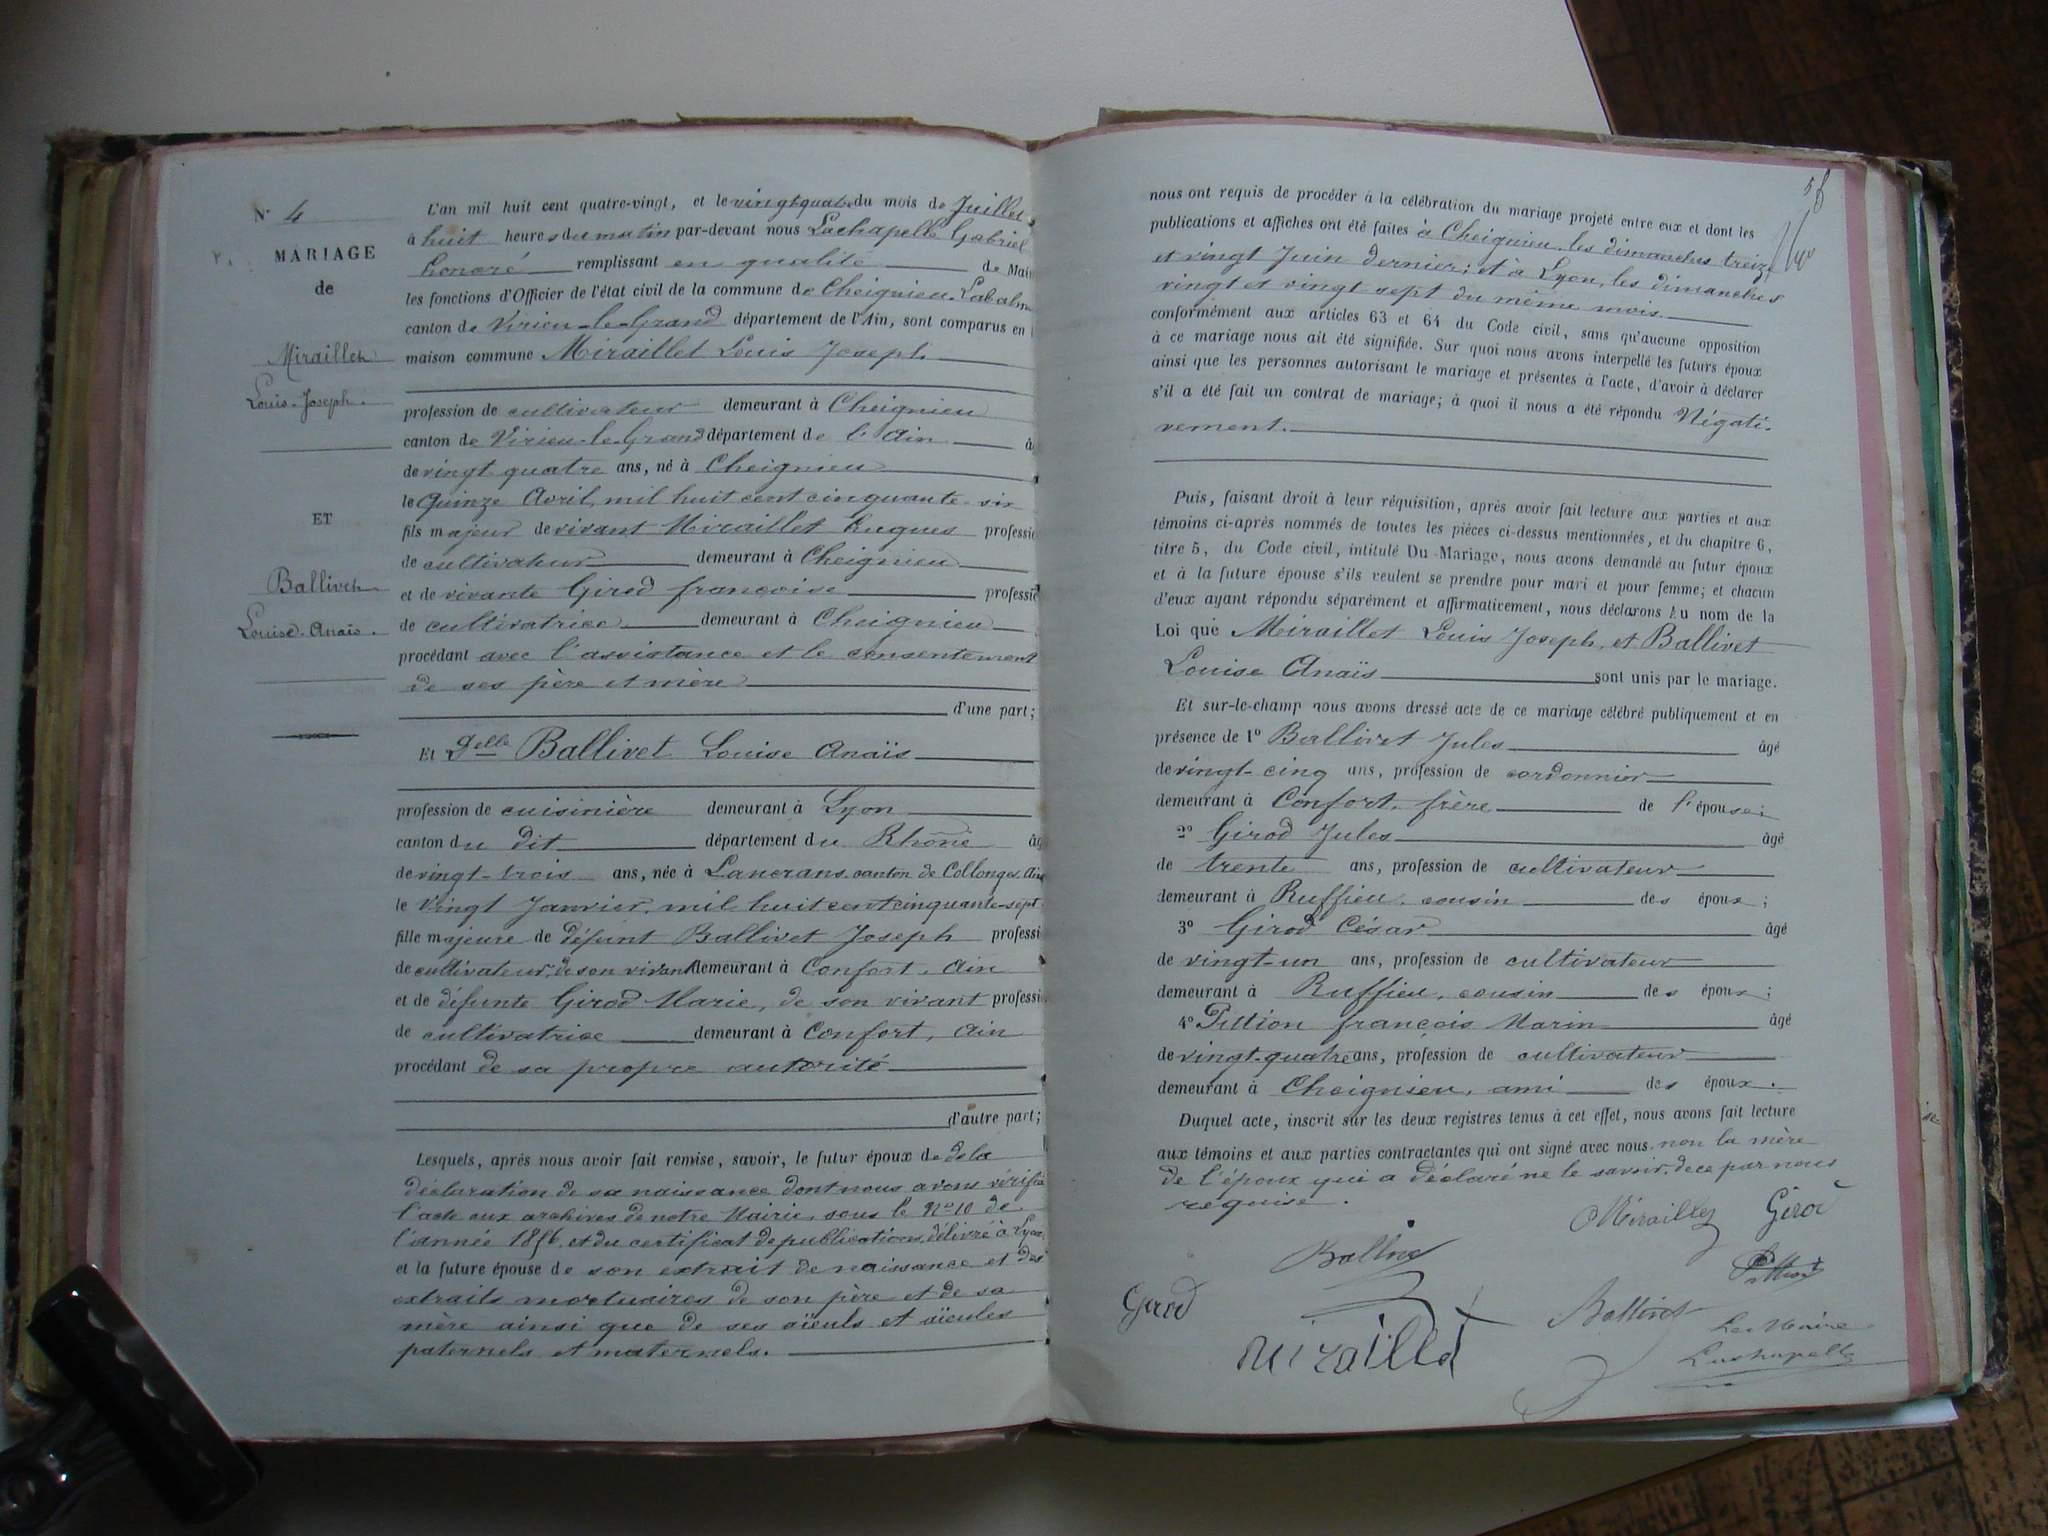 N° 4
MARIAGE
de
Miraillet
Louis-Joseph.
ET
Ballivet
Louise-Anaïs.
L'an mil huit cent quatre-vingt, et le vingt quatre du mois de Juillet
à huit heures du matin par-devant nous Lachapelle Gabriel
honoré remplissant en qualité de Maire
les fonctions d'Officier de l'état civil de la commune de Cheignieu-Labalme
canton de Virieu-le-Grand département de l'Ain, sont comparus en
maison commune Miraillet Louis Joseph
profession de cultivateur demeurant à Cheignieu
canton de Virieu-le-Grand département de l'Ain
de vingt quatre ans, né à Cheignieu
le Quinze Avril mil huit cent cinquante-six
fils majeur de vivant Miraillet Hugues professio
de cultivateur demeurant à Cheignieu
et de vivante Girod françoise professio
de cultivatrice demeurant à Cheignieu
procédant avec l'assistance et le consentement
de ses père et mère
d'une part;
Et Delle Ballivet Louise Anaïs
profession de cuisinière demeurant à Lyon
canton du dit département du Rhône âg
de vingt-trois ans, née à Lancrans canton de Collonges Ain
le Vingt Janvier mil huit cent cinquante-sept
fille majeure de défunt Ballivet Joseph professi
de cultivateur, de son vivant demeurant à Confort, Ain
et de défunte Girod Marie, de son vivant professi
de cultivatrice demeurant à Confort, Ain
procédant de sa propre autorité
d'autre part;
Lesquels, après nous avoir fait remise, savoir, le futur époux de de la
déclaration de sa naissance dont nous avons vérifié
l'acte aux archives de notre Mairie, sous le N° 10 de
l'année 1856, et du certificat de publications délivré à Lyon
et la future épouse de son extrait de naissance et des
extraits mortuaires de son père et de sa
mère ainsi que de ses aïeuls et aïeules
paternels et maternels.
nous ont requis de procéder à la célébration du mariage projeté entre eux et dont les
publications et affiches ont été faites à Cheignieu, les dimanches treize
et vingt Juin dernier; et à Lyon, les dimanches
vingt et vingt sept du même mois.
conformément aux articles 63 et 64 du Code civil, sans qu'aucune opposition
à ce mariage nous ait été signifiée. Sur quoi nous avons interpellé les futurs époux
ainsi que les personnes autorisant le mariage et présentes à l'acte, d'avoir à déclarer
s'il a été fait un contrat de mariage; à quoi il nous a été répondu Négati-
vement.
Puis, faisant droit à leur réquisition, après avoir fait lecture aux parties et aux
témoins ci-après nommés de toutes les pièces ci-dessus mentionnées, et du chapitre 6,
titre 5, du Code civil, intitulé Du Mariage, nous avons demandé au futur époux
et à la future épouse s'ils veulent se prendre pour mari et pour femme; et chacun
d'eux ayant répondu séparément et affirmativement, nous déclarons au nom de la
Loi que Miraillet Louis Joseph, et Ballivet
Louise Anaïs sont unis par le mariage.
Et sur-le-champ nous avons dressé acte de ce mariage célébré publiquement et en
présence de 1° Ballivet Jules âgé
de vingt-cinq ans, profession de cordonnier
demeurant à Confort, frère de l'épouse;
2° Girod Jules âgé
de trente ans, profession de cultivateur
demeurant à Ruffieu, cousin des époux;
3° Girod César âgé
de vingt-un ans, profession de cultivateur
demeurant à Ruffieu, cousin des époux;
4° Pittion françois Marin âgé
de vingt-quatre ans, profession de cultivateur
demeurant à Cheignieu, ami des époux.
Duquel acte, inscrit sur les deux registres tenus à cet effet, nous avons fait lecture
aux témoins et aux parties contractantes qui ont signé avec nous non la mère
de l'époux qui a déclaré ne le savoir, de ce par nous
requise.
Miraillet Girod
Ballivet
Pittion
Girod
Ballivet
Miraillet
Le Maire
Lachapelle